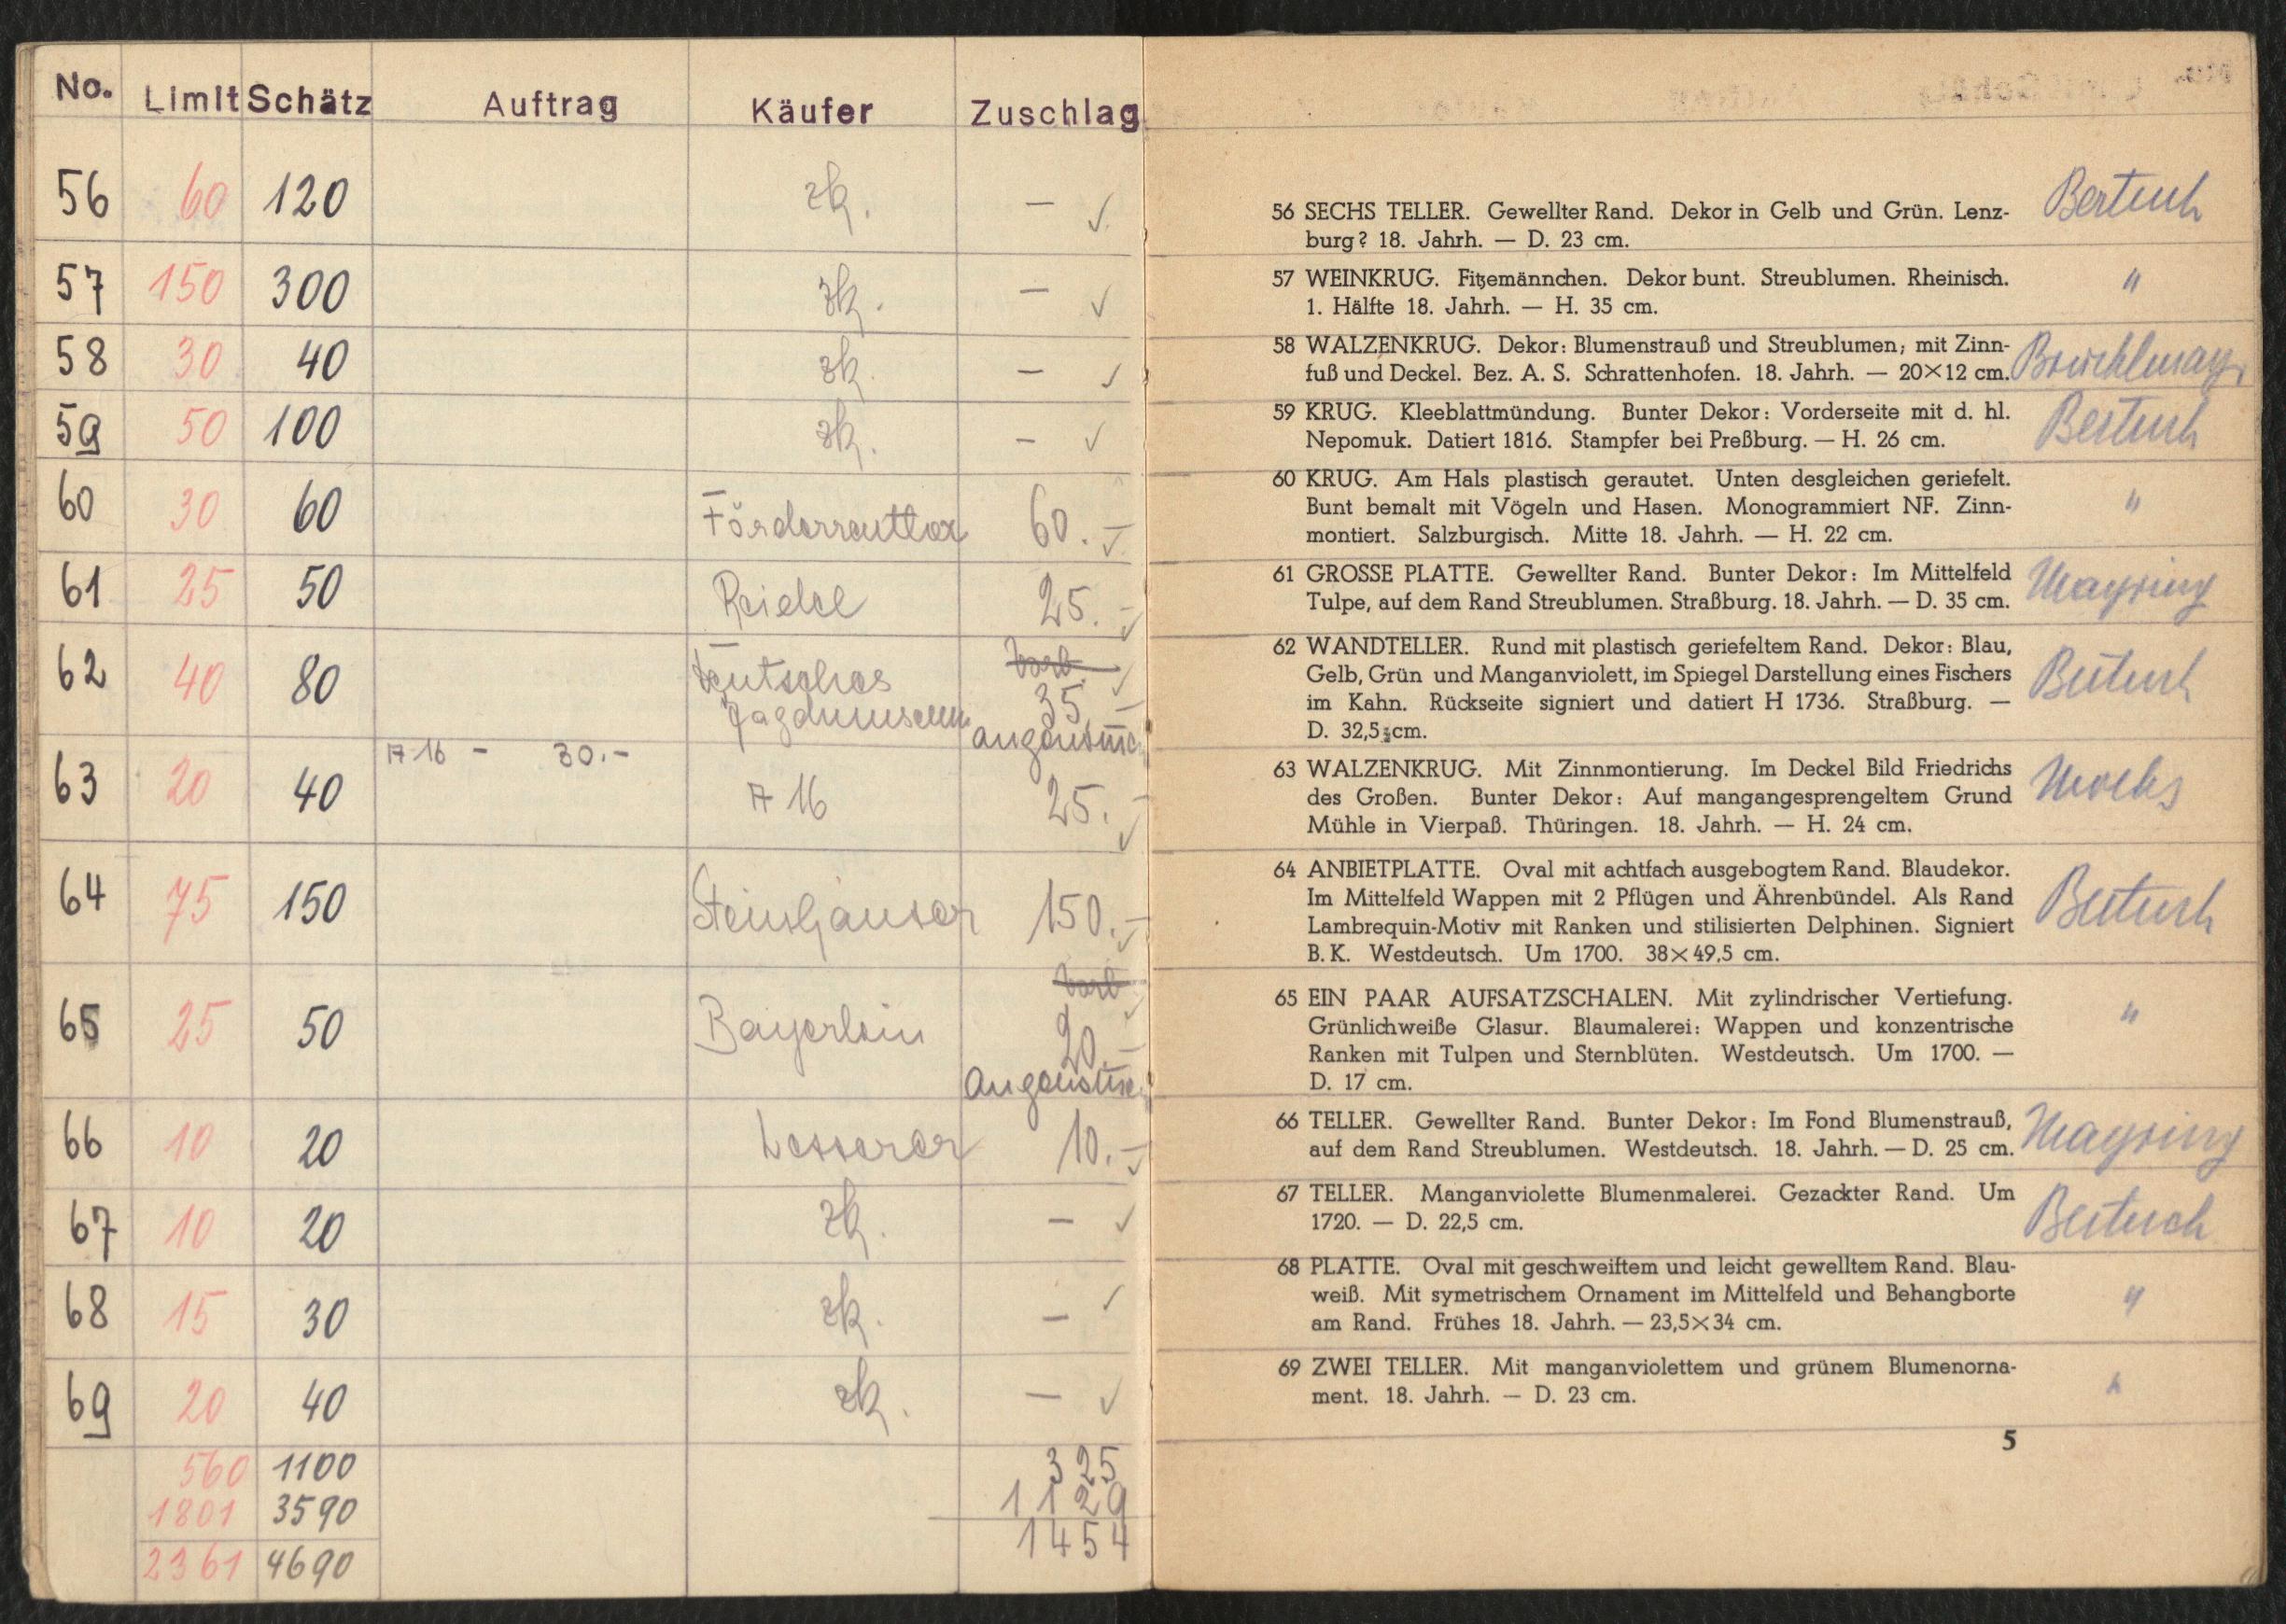 No. Limit Schätz Auftrag Käufer Zuschlag
56 60 120 zk. — ✓
57 150 300 zk. — ✓
58 30 40 zk. — ✓
59 50 100 zk. — ✓
60 30 60 Förderreuther 60.— ✓
61 25 50 Reidel 25.— ✓
62 40 80 Deutsches Jagdmuseum 35.—
63 20 40 A 16 — 30.— A 16 25.— ✓
64 75 150 Steinhäuser 150.— ✓
65 25 50 Bayerlein 20.—
66 10 20 Lesserer 10.— ✓
67 10 20 zk. — ✓
68 15 30 zk. — ✓
69 20 40 zk. — ✓
560 1100 325
1801 3590 1129
2361 4690 1454
56 SECHS TELLER. Gewellter Rand. Dekor in Gelb und Grün. Lenz-
burg? 18. Jahrh. — D. 23 cm.
Bertuch
57 WEINKRUG. Fitzemännchen. Dekor bunt. Streublumen. Rheinisch.
1. Hälfte 18. Jahrh. — H. 35 cm.
"
58 WALZENKRUG. Dekor: Blumenstrauß und Streublumen; mit Zinn-
fuß und Deckel. Bez. A. S. Schrattenhofen. 18. Jahrh. — 20×12 cm.
59 KRUG. Kleeblattmündung. Bunter Dekor: Vorderseite mit d. hl.
Nepomuk. Datiert 1816. Stampfer bei Preßburg. — H. 26 cm.
Bertuch
60 KRUG. Am Hals plastisch gerautet. Unten desgleichen geriefelt.
Bunt bemalt mit Vögeln und Hasen. Monogrammiert NF. Zinn-
montiert. Salzburgisch. Mitte 18. Jahrh. — H. 22 cm.
"
61 GROSSE PLATTE. Gewellter Rand. Bunter Dekor: Im Mittelfeld
Tulpe, auf dem Rand Streublumen. Straßburg. 18. Jahrh. — D. 35 cm.
Mayring
62 WANDTELLER. Rund mit plastisch geriefeltem Rand. Dekor: Blau,
Gelb, Grün und Manganviolett, im Spiegel Darstellung eines Fischers
im Kahn. Rückseite signiert und datiert H 1736. Straßburg. —
D. 32,5 cm.
Bertuch
63 WALZENKRUG. Mit Zinnmontierung. Im Deckel Bild Friedrichs
des Großen. Bunter Dekor: Auf mangangesprengeltem Grund
Mühle in Vierpaß. Thüringen. 18. Jahrh. — H. 24 cm.
64 ANBIETPLATTE. Oval mit achtfach ausgebogtem Rand. Blaudekor.
Im Mittelfeld Wappen mit 2 Pflügen und Ährenbündel. Als Rand
Lambrequin-Motiv mit Ranken und stilisierten Delphinen. Signiert
B. K. Westdeutsch. Um 1700. 38×49,5 cm.
Bertuch
65 EIN PAAR AUFSATZSCHALEN. Mit zylindrischer Vertiefung.
Grünlichweiße Glasur. Blaumalerei: Wappen und konzentrische
Ranken mit Tulpen und Sternblüten. Westdeutsch. Um 1700. —
D. 17 cm.
"
66 TELLER. Gewellter Rand. Bunter Dekor: Im Fond Blumenstrauß,
auf dem Rand Streublumen. Westdeutsch. 18. Jahrh. — D. 25 cm.
Mayring
67 TELLER. Manganviolette Blumenmalerei. Gezackter Rand. Um
1720. — D. 22,5 cm.
Bertuch
68 PLATTE. Oval mit geschweiftem und leicht gewelltem Rand. Blau-
weiß. Mit symetrischem Ornament im Mittelfeld und Behangborte
am Rand. Frühes 18. Jahrh. — 23,5×34 cm.
"
69 ZWEI TELLER. Mit manganviolettem und grünem Blumenorna-
ment. 18. Jahrh. — D. 23 cm.
"
5